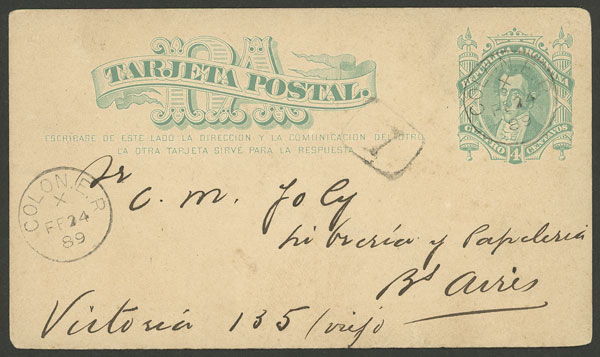 RA
TARJETA POSTAL.
ESCRÍBASE DE ESTE LADO LA DIRECCION Y LA COMUNICACION DEL OTRO
LA OTRA TARJETA SIRVE PARA LA RESPUESTA
REPUBLICA ARGENTINA
CUATRO 4 CENTAVOS
COLON. E.R
X
FE 24
89
Sr
C. M. Joly
Librería y Papeleria
Bs Aires
Victoria 135 / viejo